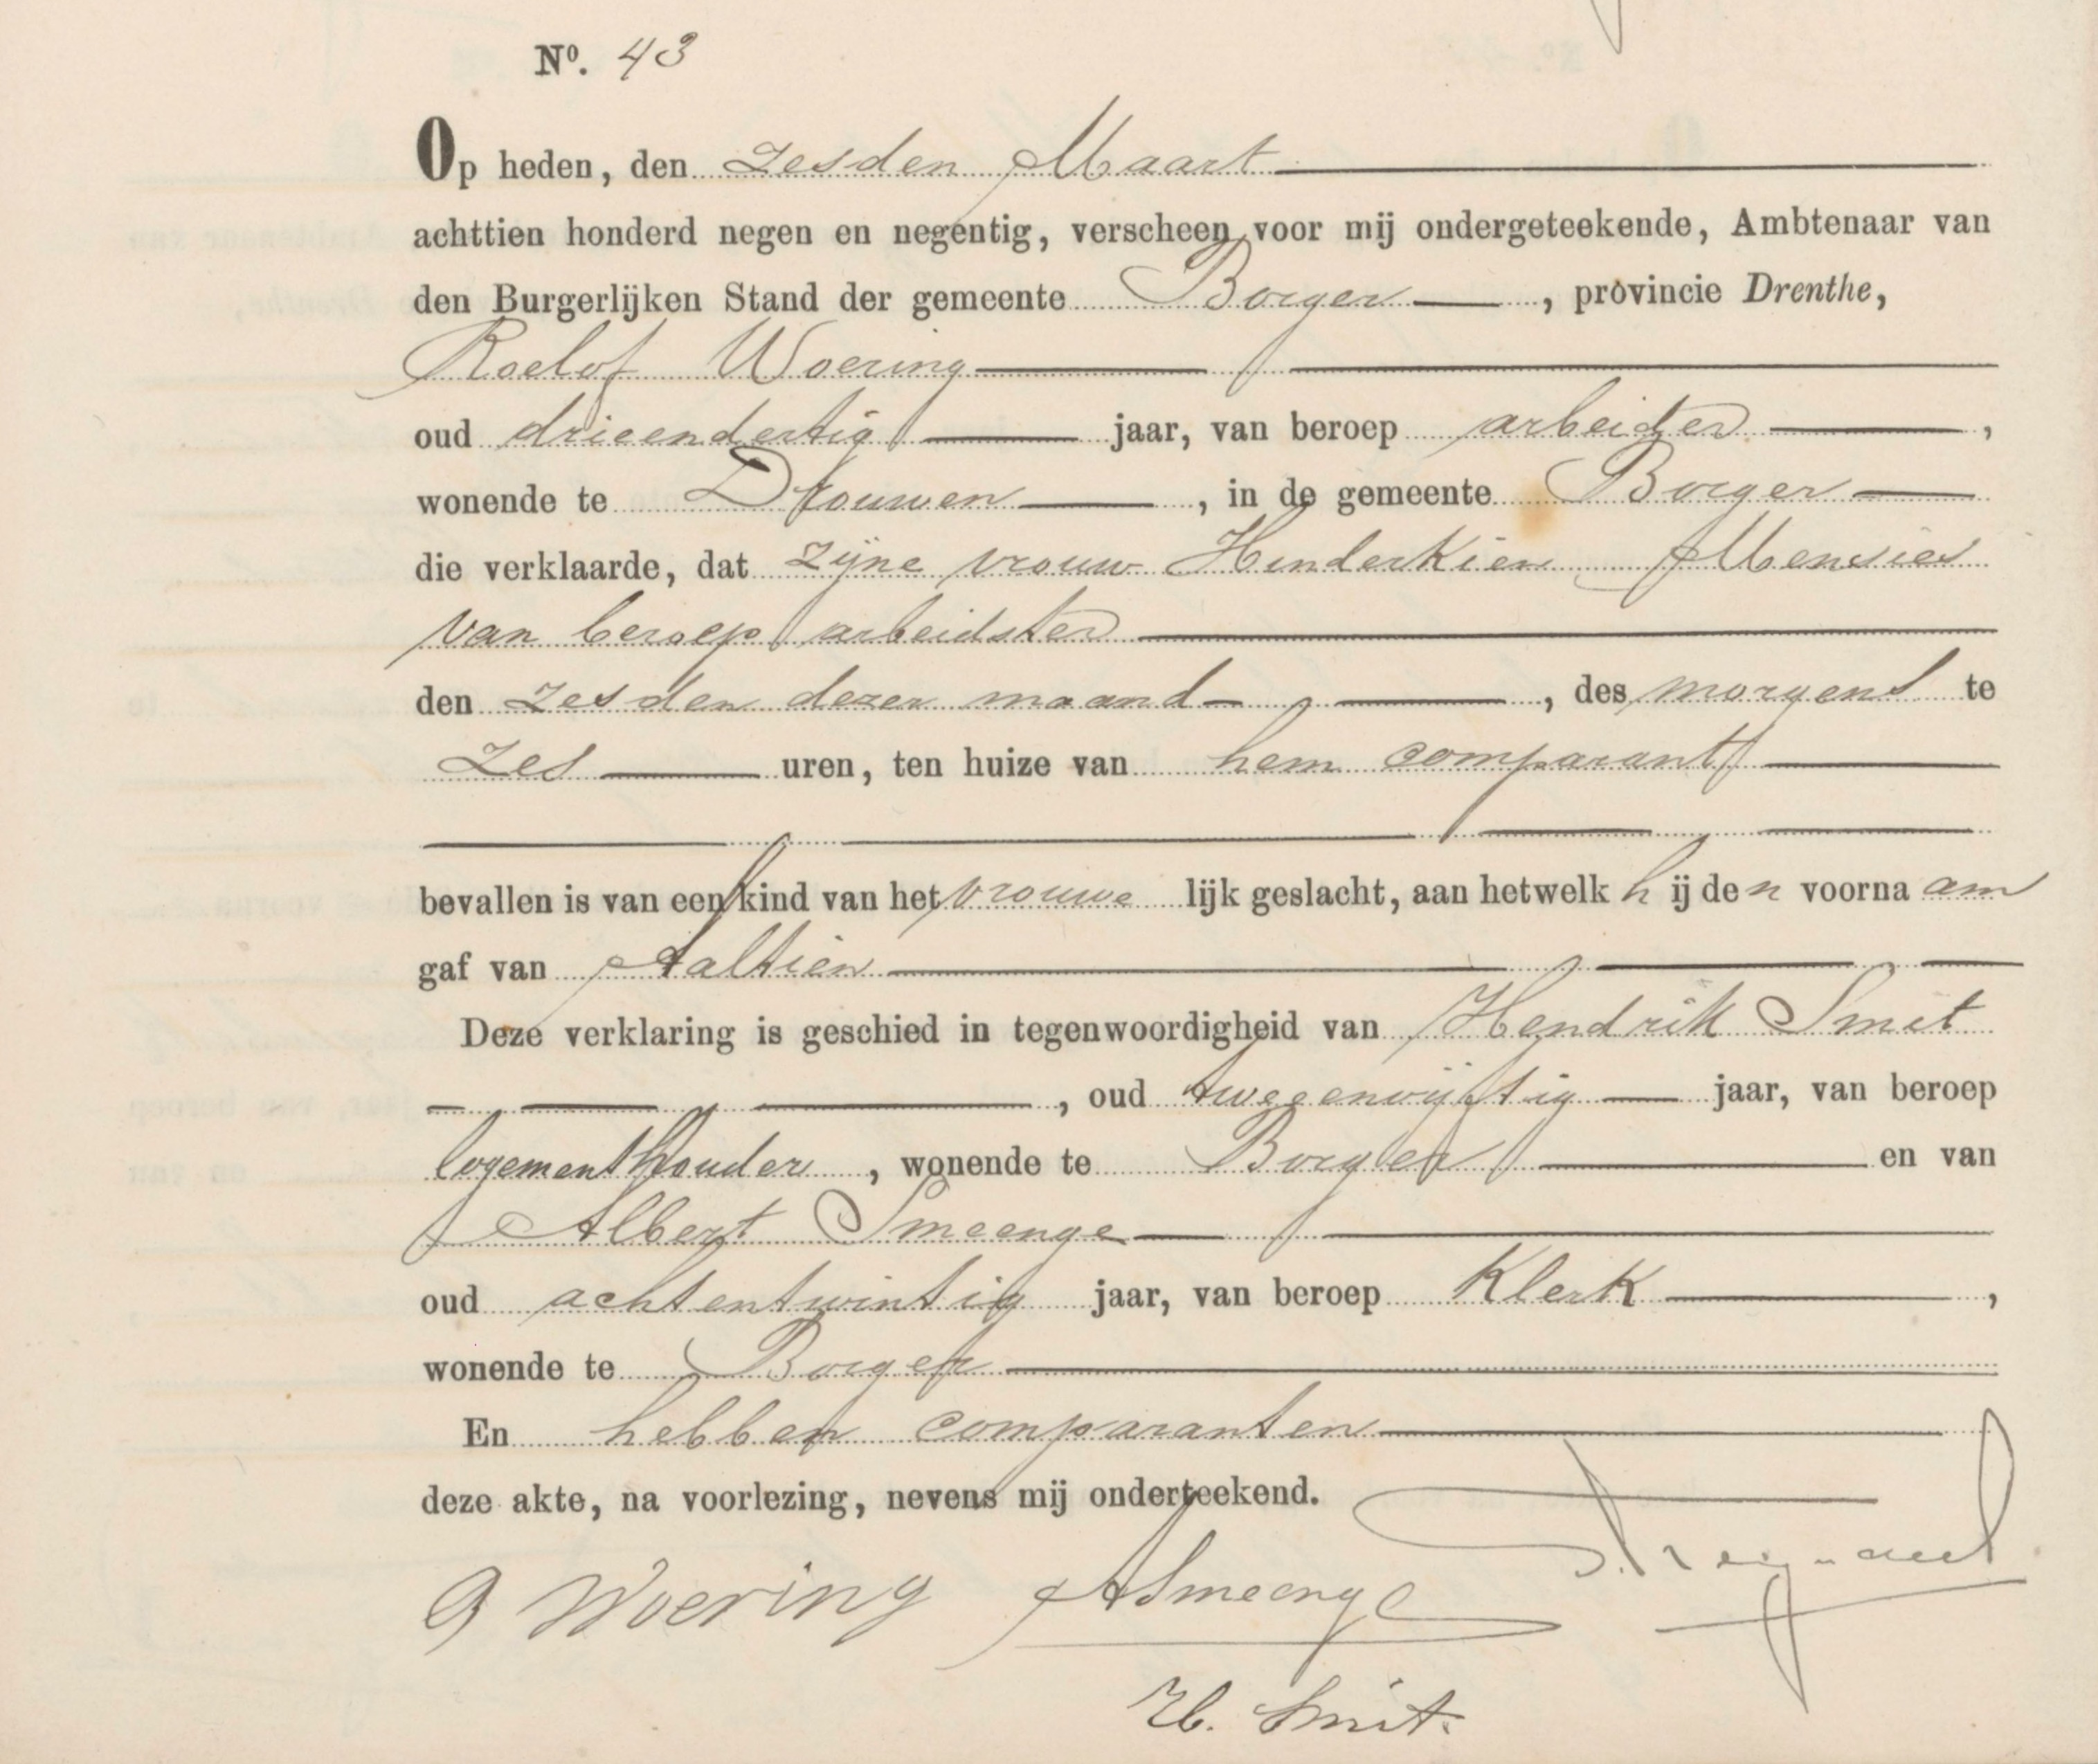 Nº. 43
Op heden, den zesden Maart
achttien honderd negen en negentig, verscheen voor mij ondergeteekende, Ambtenaar van
den Burgerlijken Stand der gemeente Borger, provincie Drenthe,
Roelof Woering
oud drieendertig jaar, van beroep arbeider,
wonende te Drouwen, in de gemeente Borger
die verklaarde, dat zijne vrouw Henderkien Mensies
van beroep arbeidster
den zesden dezer maand, des morgens te
zes uren, ten huize van hem comparant
bevallen is van een kind van het vrouwelijk geslacht, aan hetwelk hij den voornaam
gaf van Aaltien
Deze verklaring is geschied in tegenwoordigheid van Hendrik Smit
, oud tweeenvijftig jaar, van beroep
logementhouder, wonende te Borger en van
Albert Smeenge
oud achtentwintig jaar, van beroep Klerk,
wonende te Borger
En hebben comparanten
deze akte, na voorlezing, nevens mij onderteekend.
Woering ASmeenge
H. Smit.